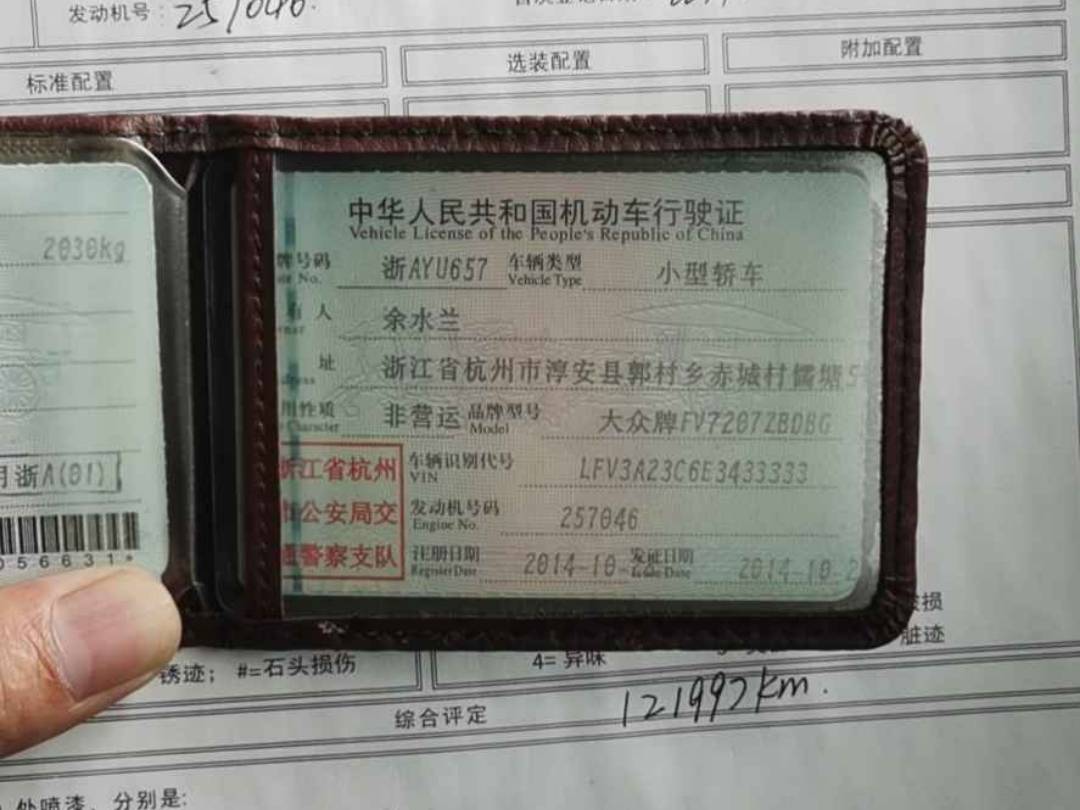 发动机号: 257046.
标准配置
选装配置
附加配置
2030kg
浙A(01)
056631*
中华人民共和国机动车行驶证
Vehicle License of the People's Republic of China
牌号码 浙AYU657 车辆类型 小型轿车
No. Vehicle Type
人 余水兰
址 浙江省杭州市淳安县郭村乡赤城村儒塘5
用性质 非营运 品牌型号 大众牌FV7207ZBDBG
Character Model
浙江省杭州 车辆识别代号 LFV3A23C6E3433333
VIN
市公安局交 发动机号码 257046
Engine No.
通警察支队 注册日期 2014-10- 发证日期 2014-10-2
Register Date Issue Date
损
脏迹
锈迹; #=石头损伤
4= 异味
综合评定
121997km.
处喷漆、分别是: